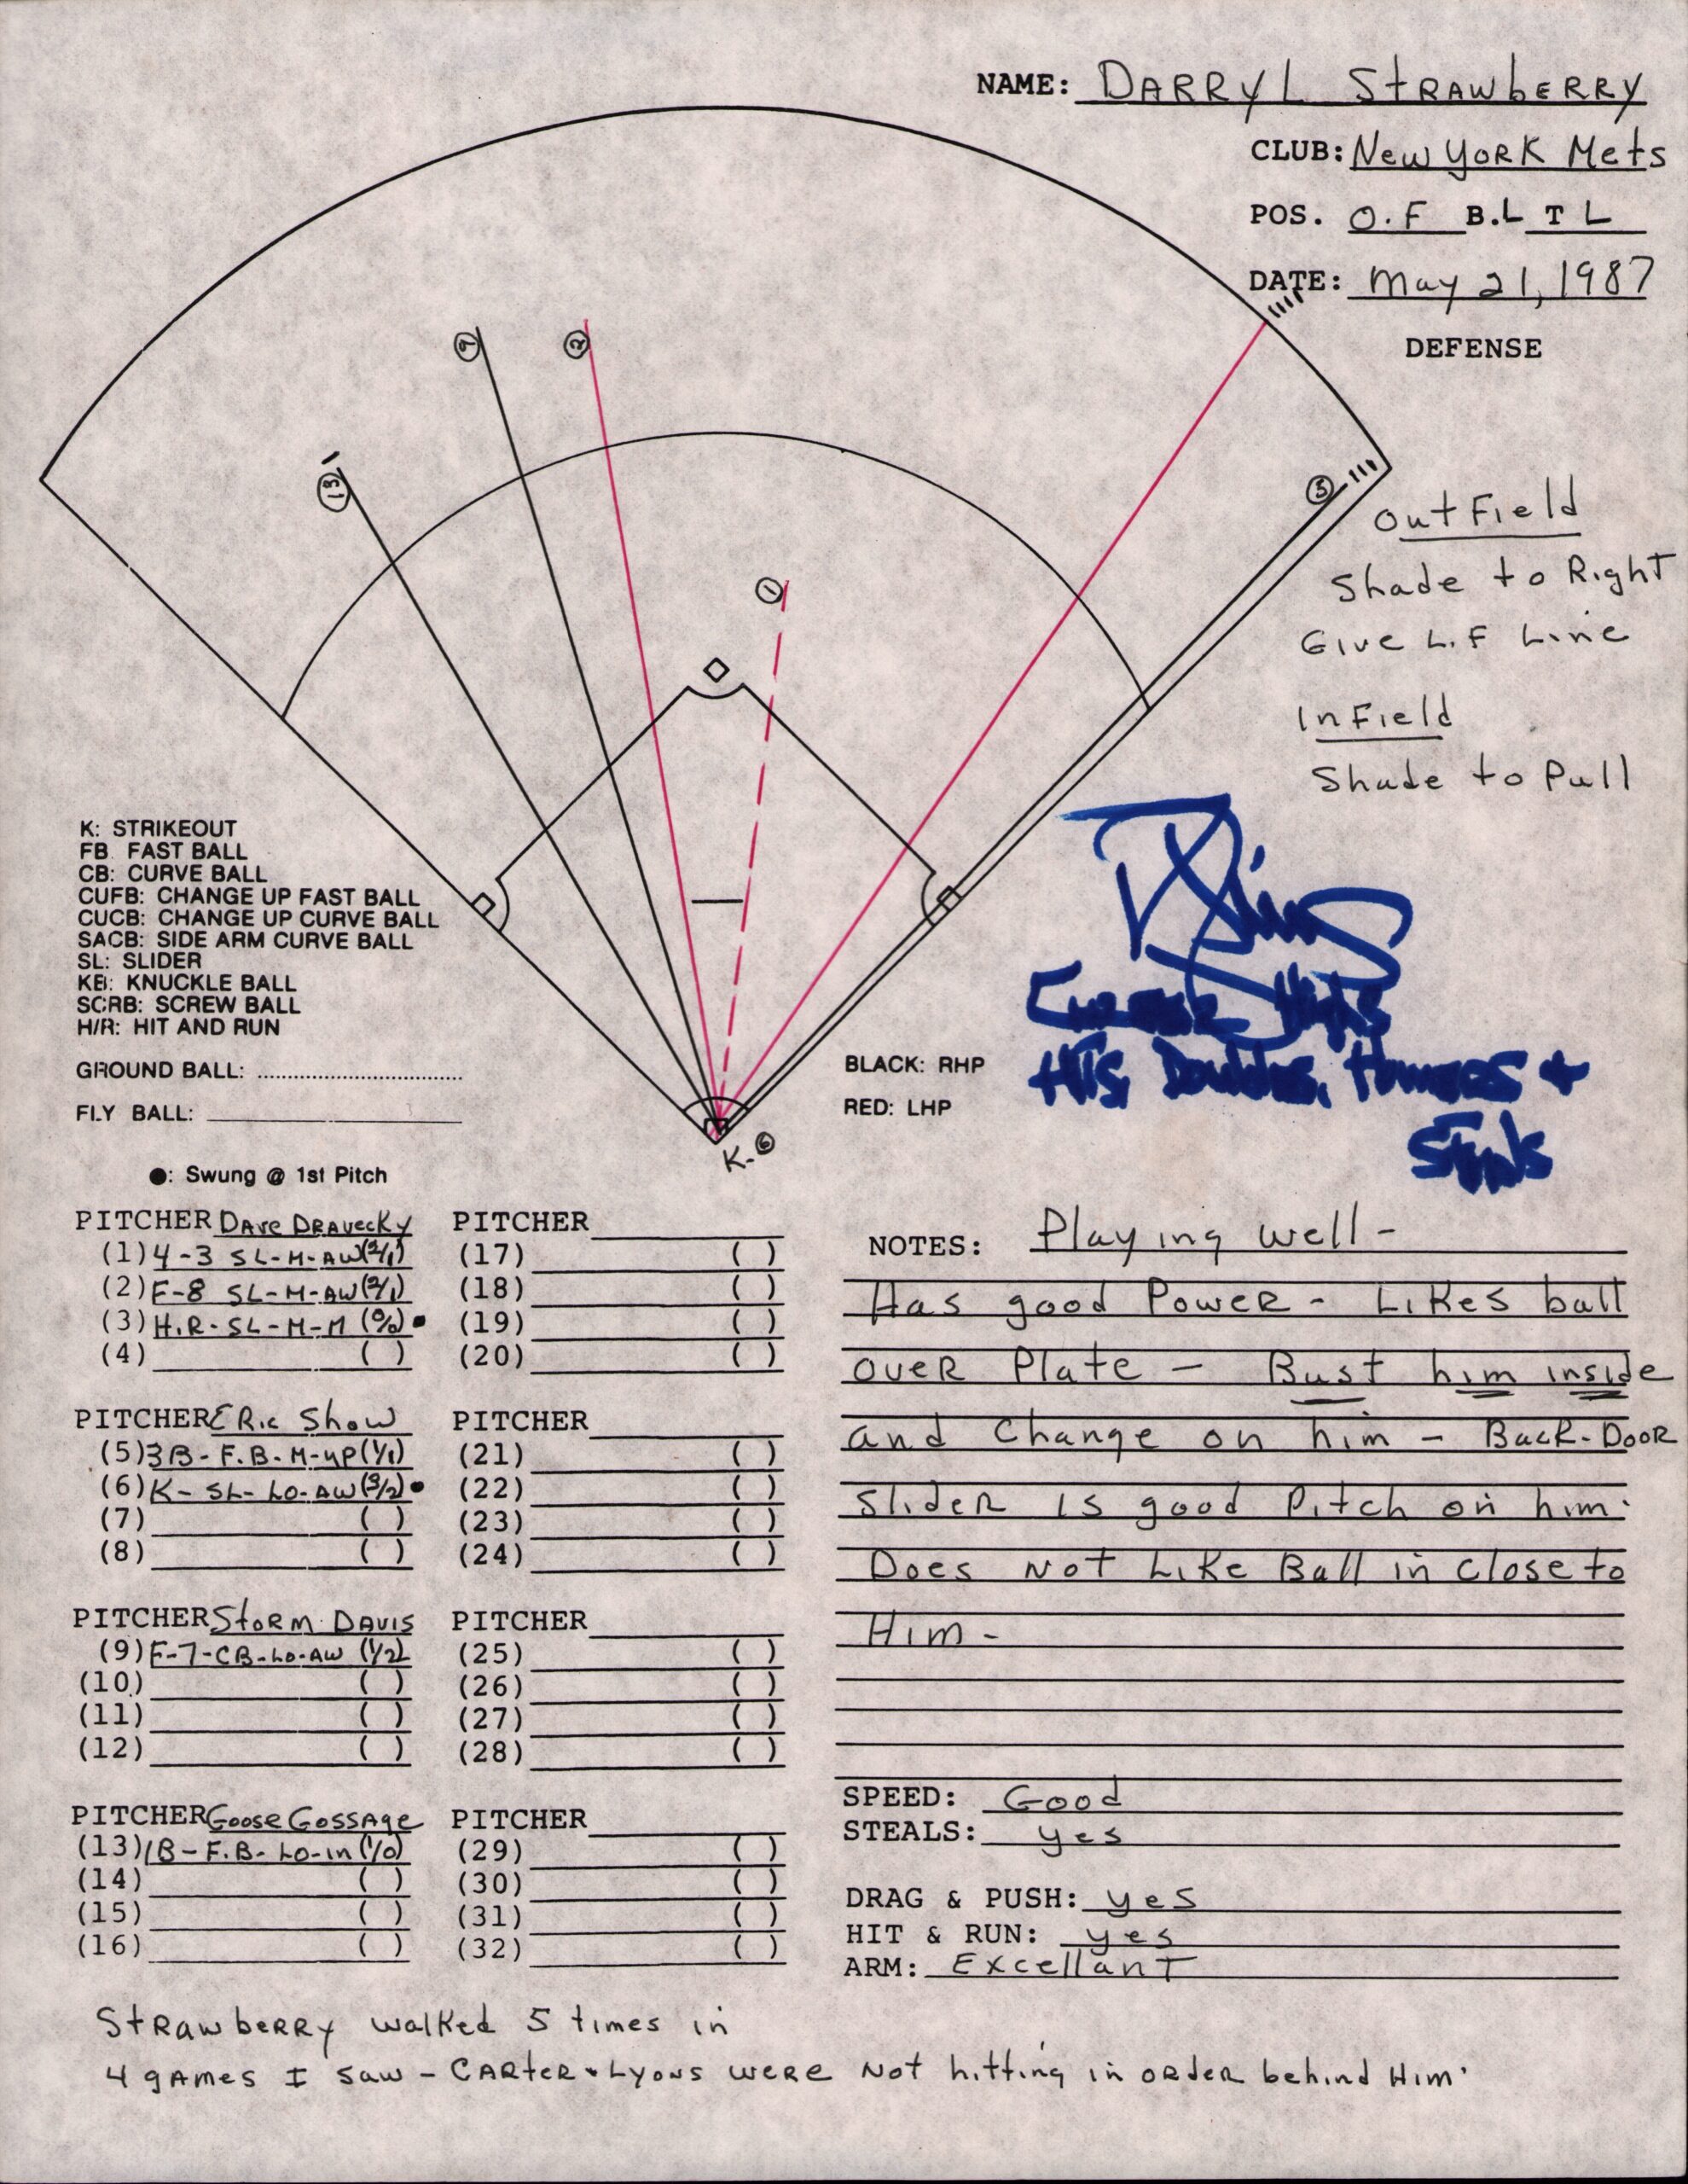 NAME: DARRYL STRAWBERRY
CLUB: New YORK Mets
POS. O.F B.L T L
DATE: May 21, 1987
DEFENSE
OutField
Shade to Right
Give L.F Line
InField
Shade to Pull
9
2
13
5
1
K: STRIKEOUT
FB FAST BALL
CB: CURVE BALL
CUFB: CHANGE UP FAST BALL
CUCB: CHANGE UP CURVE BALL
SACB: SIDE ARM CURVE BALL
SL: SLIDER
KB: KNUCKLE BALL
SCRB: SCREW BALL
H/R: HIT AND RUN
GROUND BALL:
FLY BALL:
BLACK: RHP
RED: LHP
K-6
Career Highs
Hits, Doubles, Homers +
●: Swung @ 1st Pitch
PITCHER Dave DRAVECKY
(1) 4-3 SL-M-AW (2/1)
(2) F-8 SL-M-AW (2/1)
(3) H.R-SL-M-M (0/0) •
(4) ( )
PITCHER ERic Show
(5) 3B-F.B-M-UP (1/1)
(6) K-SL-LO-AW (3/2) •
(7) ( )
(8) ( )
PITCHER StoRM DAVIS
(9) F-7-CB-LO-AW (1/2)
(10) ( )
(11) ( )
(12) ( )
PITCHER Goose GOSSAge
(13) 1B-F.B-LO-in (1/0)
(14) ( )
(15) ( )
(16) ( )
PITCHER
(17) ( )
(18) ( )
(19) ( )
(20) ( )
PITCHER
(21) ( )
(22) ( )
(23) ( )
(24) ( )
PITCHER
(25) ( )
(26) ( )
(27) ( )
(28) ( )
PITCHER
(29) ( )
(30) ( )
(31) ( )
(32) ( )
NOTES: Playing well-
Has good Power - Likes ball
over Plate - Bust him inside
and Change on him - Back-Door
Slider is good Pitch on him.
Does Not Like Ball in close to
Him-
SPEED: Good
STEALS: yes
DRAG & PUSH: yes
HIT & RUN: yes
ARM: Excellant
StRAwbeRRy walked 5 times in
4 gAmes I saw - CARteR + Lyons were Not hitting in order behind Him.